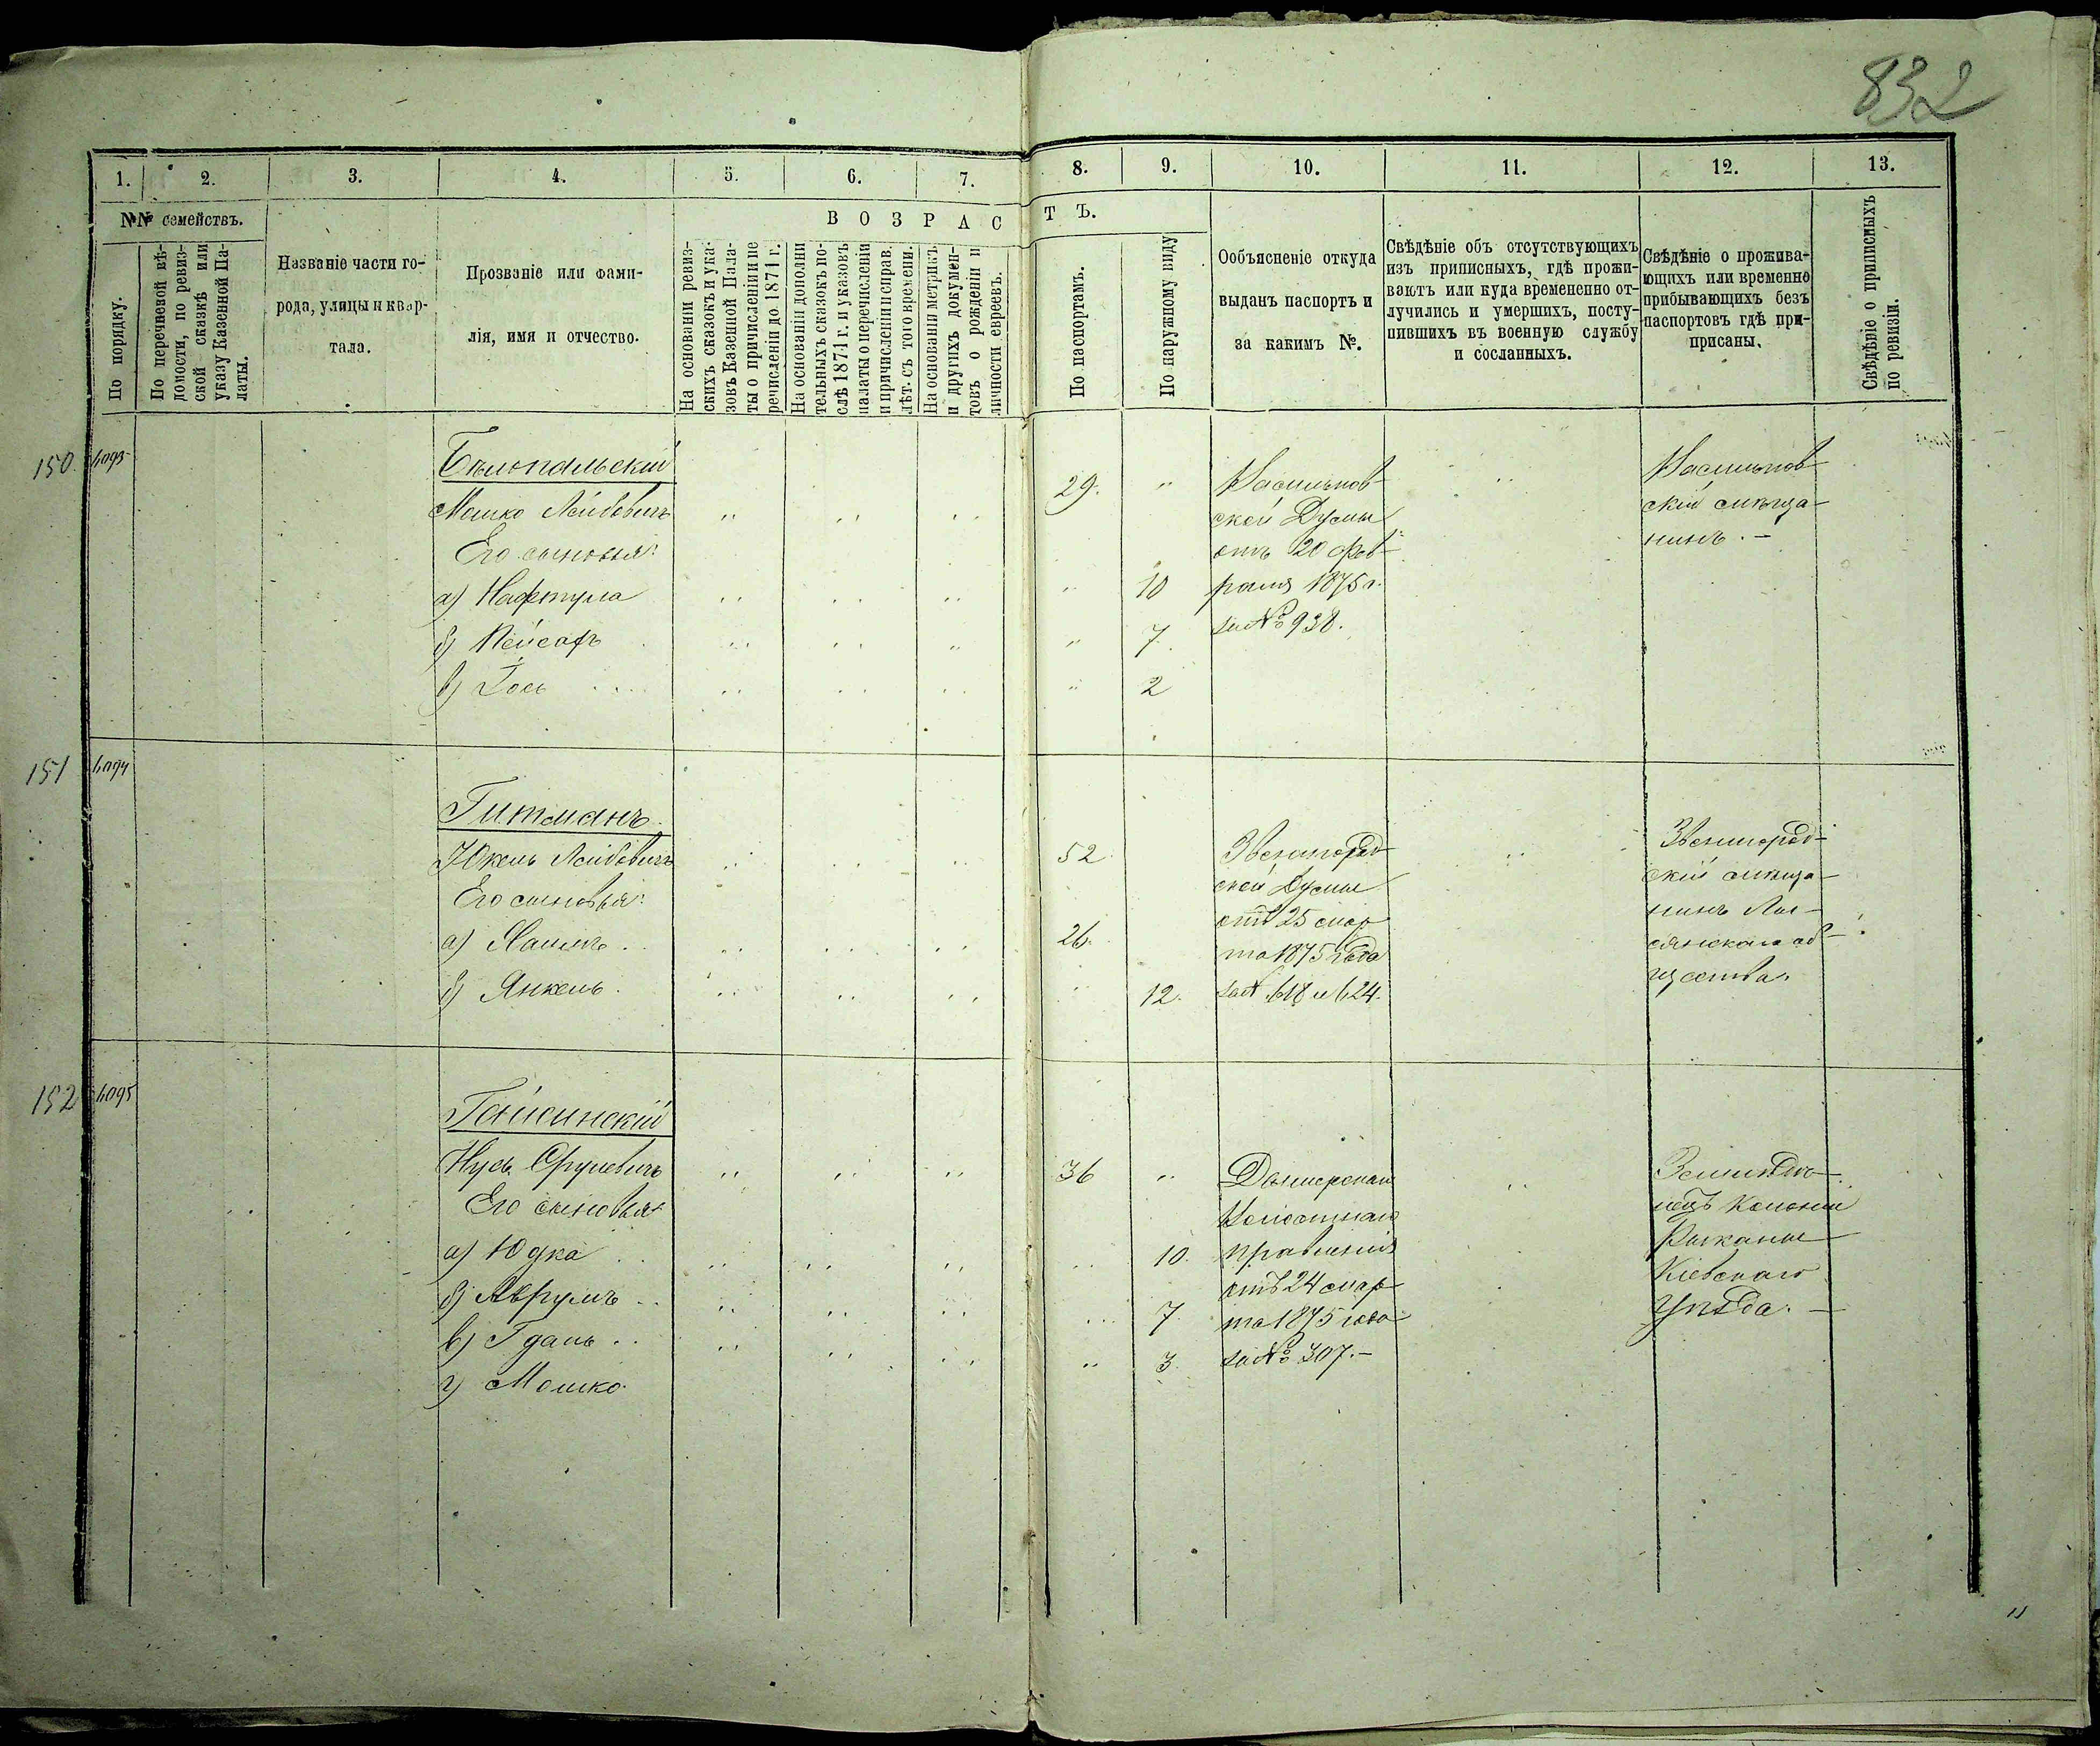 832
1. 2. 3. 4. 5. 6. 7. 8. 9. 10. 11. 12. 13.
№№ семействъ.
По порядку.
По перечневой вѣ-
домости, по ревиз-
ской сказкѣ или
указу Казенной Па-
латы.
Названіе части го-
рода, улицы и квар-
тала.
Прозваніе или фами-
лія, имя и отчество.
ВОЗРАСТЪ.
На основаніи ревиз-
скихъ сказокъ и ука-
зовъ Казенной Пала-
ты о причисленіи и пе
речисленіи до 1871 г.
На основаніи дополни
тельныхъ сказокъ по-
слѣ 1871 г. и указовъ
палаты о перечисленіи
и причисленіи и справ.
лѣт. съ того времени.
На основаніи метрикъ
и другихъ докумен-
товъ о рожденіи и
личности евреевъ.
По паспортамъ.
По наружному виду
Ообъясненіе откуда
выданъ паспортъ и
за какимъ №.
Свѣдѣніе объ отсутствующихъ
изъ приписныхъ, гдѣ прожи-
ваютъ или куда времененно от-
лучились и умершихъ, посту-
пившихъ въ военную службу
и сосланныхъ.
Свѣдѣніе о прожива-
ющихъ или временно
прибывающихъ безъ
паспортовъ гдѣ при-
писаны.
Свѣдѣніе о приписныхъ
по ревизіи.
150. 4093
Бѣлопольскій
Мошко Лейбовичъ
Его сыновья:
а) Нафтула
б) Пейсахъ
в) Іось
29. "
" 10
" 7.
" 2
Хмѣльнов-
ской Думы
отъ 20 фев-
раля 1875 г.
за № 938.
скій мѣща-
нинъ. -
151 4094
Гитманъ.
Юкель Лейбовичъ
Его сыновья:
а) Хаимъ.
б) Янкель.
52.
26.
" 12.
Звенигород-
ской Думы
отъ 25 мар-
та 1875 года
за № 618 и 624.
Звенигород-
скій мѣща-
нинъ Лы-
сянскаго об-
щества.
152 4095
Гайсинскій
Нусь Срулевичъ
Его сыновья
а) Юдка
б) Аврумъ
в) Гдаль
г) Мошко.
36 "
" 10.
" 7.
" 3.
Волостнаго
правленія
отъ 24 мар-
та 1875 года
за № 307. -
Земледѣ-
лецъ Колоніи
Кіевскаго
уѣзда. -